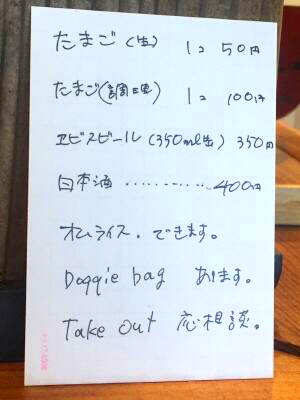 たまご(生) 1コ 50円
たまご(調理) 1コ 100円
ヱビスビール(350ml缶) 350円
日本酒…………400円
オムライス.できます。
Doggie bag あります。
Take out 応相談。